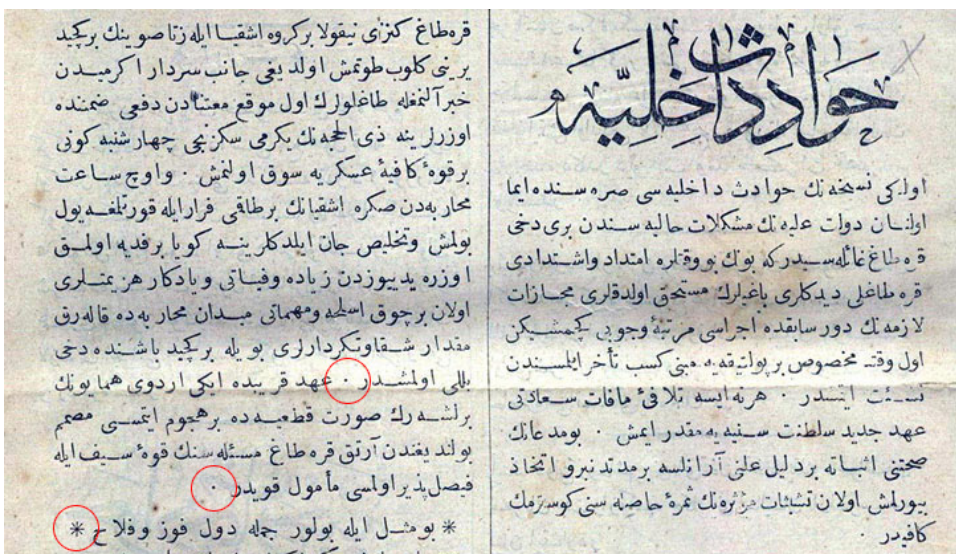 حوادث داخلیّه
اولكی نسخه نك حوادث داخلیه سی صره سنده ایما
اولنان دولت علیه نك مشكلات حالیه سندن بری دخی
قره طاغ غائله سیدر كه بونك بو وقتلره امتداد واشتدادی
قره طاغلی دیدكلری باغیلرك مستحق اولدقلری مجازات
لازمه نك دور سابقده اجراسی مرتبهٔ وجوبی كچمشیكن
اول وقت مخصوص بر پولتیقه یه مبنی كسب تأخر ایلمسندن
نشئت ایتشدر · هر نه ایسه تلافیٔ مافات سعادتی
عهد جدید سلطنت سنیه یه مقدر ایمش · بو مدعانك
صحتنی اثباته بر دلیل علنی آرانلسه بر مدتدنبرو اتخاذ
بیورلمش اولان تشبثات مؤثره نك ثمرهٔ حاصله سنی كوسترمك
كافیدر ·
قره طاغ كنزای نیقولا بر كروه اشقیا ایله زتا صوینك بر كچید
یرینی كلوب طوتمش اولدیغی جانب سردار اكرمیدن
خبر آلنمغله طاغلولرك اول موقع معتنادن دفعی ضمننده
اوزرلرینه ذی الحجه نك یكرمی سكزنجی چهارشنبه كونی
بر قوهٔ كافیهٔ عسكریه سوق اولنمش · واوچ ساعت
محاربه دن صكره اشقیانك بر طاقی فرار ایله قورتلغه یول
بولمش وتخلیص جان ایلدكلرینه كویا بر فدیه اولمق
اوزره یدییوزدن زیاده وفیاتی ویادكار هزیمتلری
اولان بر چوق اسلحه ومهماتی میدان محاربه ده قاله رق
مقدار شقاوتكردارلری بویله بر كچید باشنده دخی
بللی اولمشدر · عهد قریبده ایكی اردوی همایونك
برلشه رك صورت قطعیه ده بر هجوم ایتمسی مصمم
بولندیغندن آرتق قره طاغ مسئله سنك قوهٔ سیف ایله
فیصلپذیر اولمسی مأمول قویدر ·
* بو مثل ایله بولور جمله دول فوز وفلاح *